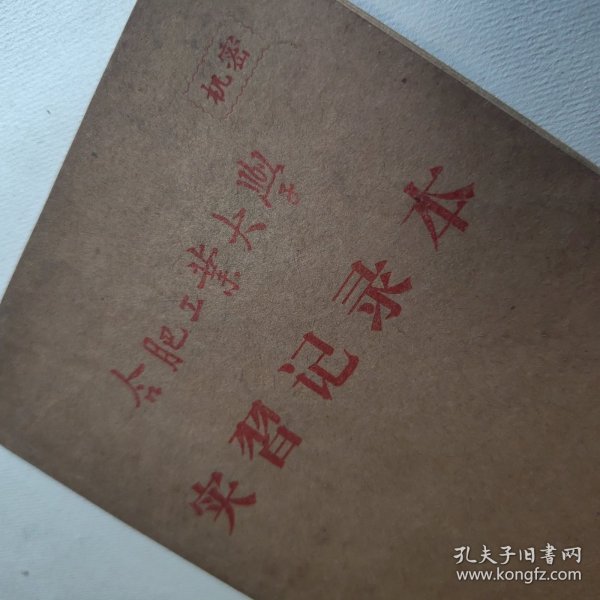 机密
合肥工業大學
实習记录本
孔夫子旧書网
www.kongfz.com